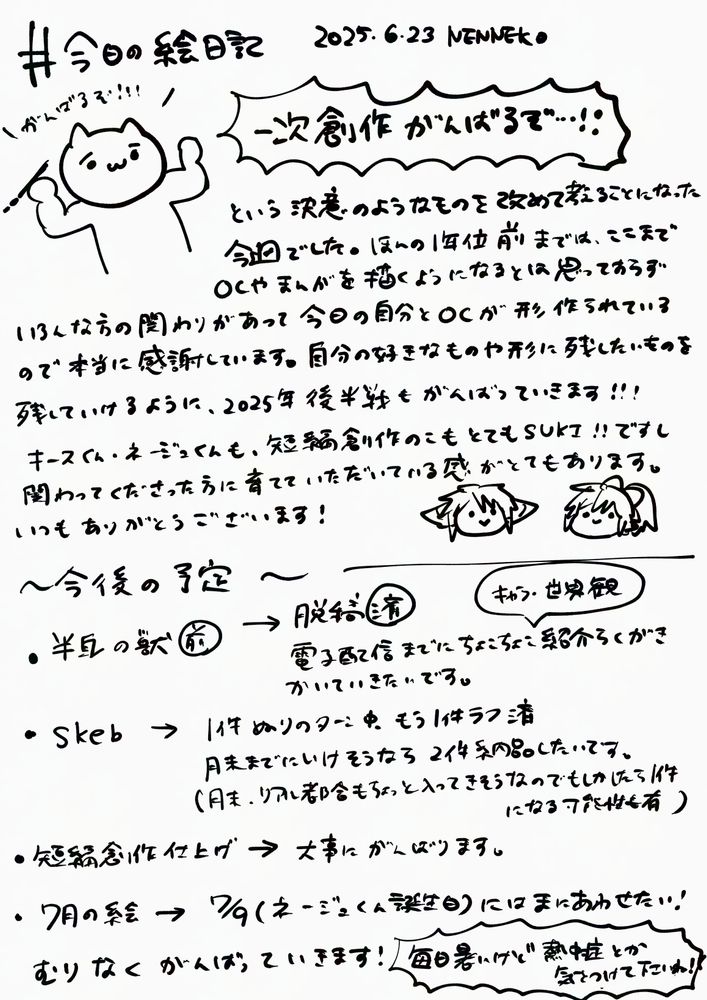 #今日の絵日記 2025.6.23 NENNEKO
がんばるぞ!!!
一次創作がんばるぞ…!!
という決意のようなものを改めて考えることになった
今週でした。ほんの1年位前までは、ここまで
OCやまんがを描くようになるとは思っておらず
いろんな方の関わりがあって今日の自分とOCが形作られている
ので本当に感謝しています。自分の好きなものや形に残したいものを
残していけるように、2025年後半戦もがんばっていきます!!!
キースくん・ネージュくんも、短編創作のこもとてもSUKI!!ですし
関わってくださった方に育てていただいている感がとてもあります。
いつもありがとうございます!
〜今後の予定〜
・半身の獣前→脱稿済
キャラ・世界観
電子配信までにちょこちょこ紹介らくがき
かいていきたいです。
・Skeb→1件ぬりのターン中、もう1件ラフ済
月末までにいけそうなら2件納品したいです。
(月末、リアル都合もちょっと入ってきそうなのでもしかしたら1件
になる可能性も有)
・短編創作仕上げ→大事にがんばります。
・7月の絵→7/9(ネージュくん誕生日)にはまにあわせたい!
むりなくがんばっていきます!
毎日暑いけど熱中症とか
気をつけて下さいね!